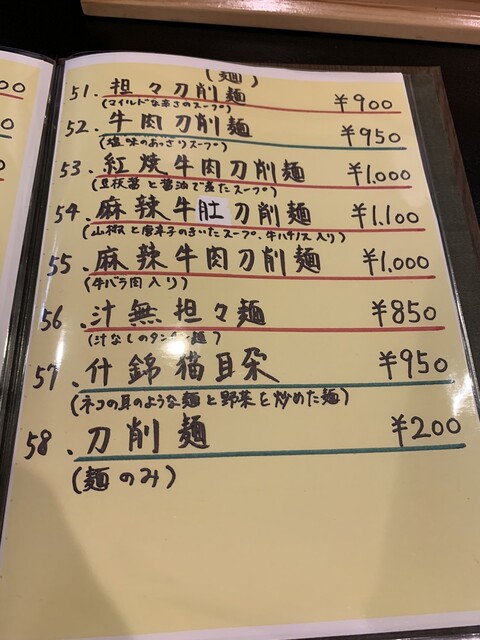 (麺)
51. 担々刀削麺 ¥900
(マイルドな辛さのスープ)
52. 牛肉刀削麺 ¥950
(塩味のあっさりスープ)
53. 紅焼牛肉刀削麺 ¥1.000
(豆板醤と醤油で煮たスープ)
54. 麻辣牛肚刀削麺 ¥1.100
(山椒と唐辛子のきいたスープ、牛ハチノス入り)
55. 麻辣牛肉刀削麺 ¥1.000
(牛バラ肉入り)
56. 汁無担々麺 ¥850
(汁なしのタンタン麺)
57. 什錦猫耳朶 ¥950
(ネコの耳のような麺と野菜を炒めた麺)
58. 刀削麺 ¥200
(麺のみ)